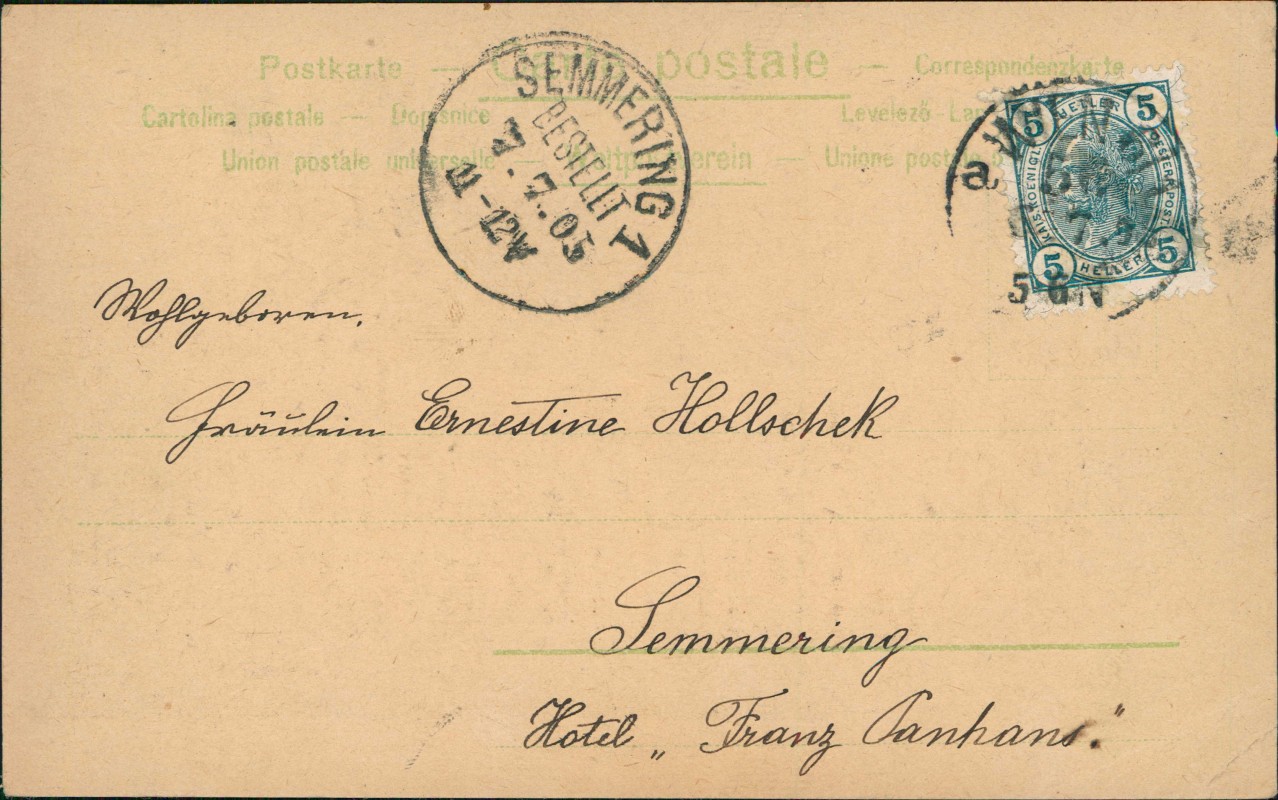 Postkarte — Carte postale — Correspondenzkarte
Cartolina postale — Dopisnice
Levelező-Lap
Union postale universelle — Weltpostverein — Unione postale
SEMMERING 1
BESTELLT
7.03
-12V
a
5 5
5 5
HELLER
HELLER
KAIS.KOENIGL.
OESTERR.POST
Wohlgeboren.
Fräulein Ernestine Hollschek
Semmering
Hotel „Franz Panhans."